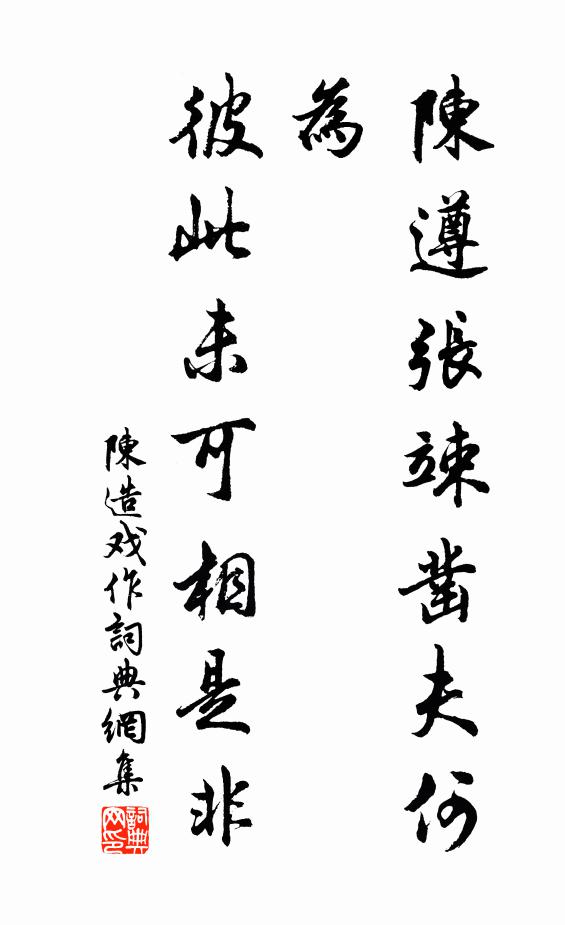 陳遵張竦鑿夫何
為
彼此未可相是非
陳造戏作詞典網集
詞典网印